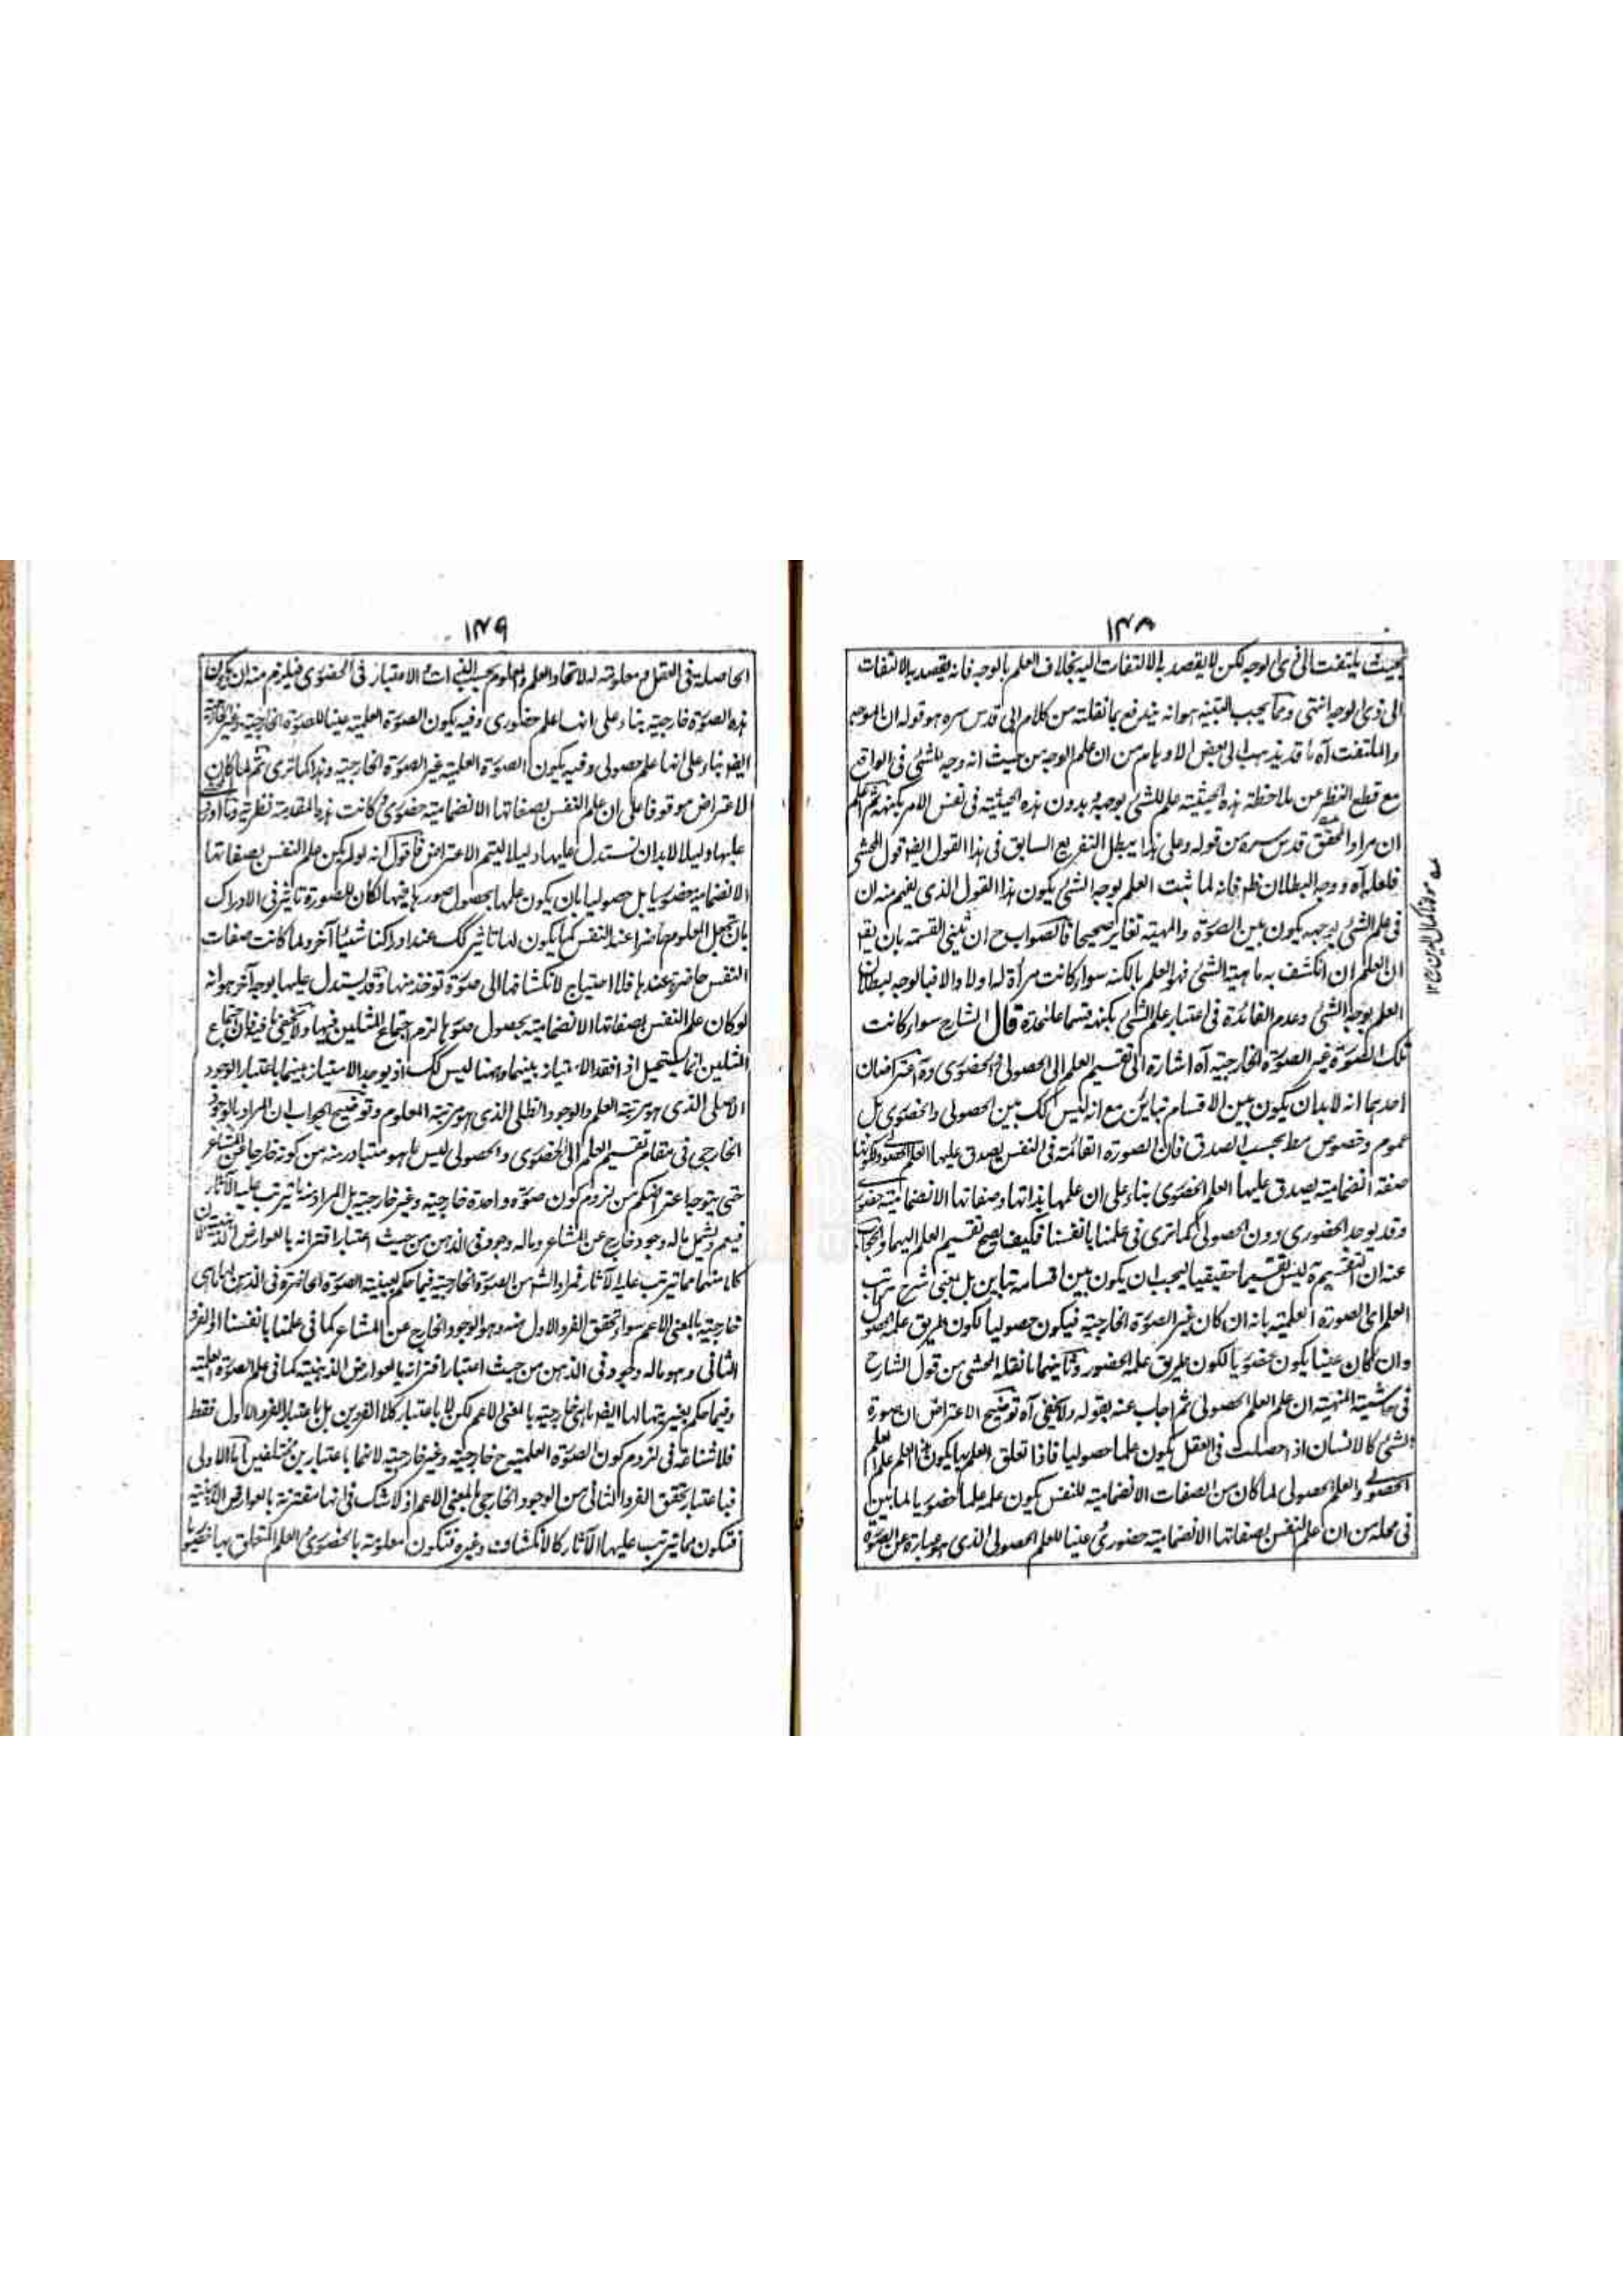 ١٤٨
بحيث يلتفت الى ذى الوجه لكن لا يقصد به الالتفات اليه بخلاف العلم بالوجه فانه يقصد به الالتفات
الى ذى الوجه انتهى ومما يجب التنبيه هو انه يندفع بما نقلته من كلام ابى قدس سره هو قوله ان الموجه
والملتفت آه ما قد يذهب الى بعض الاوهام من ان علم الوجه من حيث انه وجه للشئ فى الواقع
مع قطع النظر عن ملاحظة هذه الحيثية علم للشئ بوجهه وبدون هذه الحيثية فى نفس الامر بكنهه ثم اعلم
ان مراد المحقق قدس سره من قوله وعلى هذا يبطل التفريع السابق فى هذا القول ايضا قول المحشى
فلعله آه ووجه البطلان ظم فانه لما ثبت العلم بوجه الشئ يكون هذا القول الذى يفهم منه ان
فى علم الشئ بوجهه يكون بين الصورة والمهية تغاير صحيحا فالصواب ح ان تثنى القسمة بان يقا
ان العلم ان انكشف به ماهية الشئ فهو العلم بالكنه سواء كانت مرآة له اولا والا فبالوجه لبطلان
العلم بوجه الشئ وعدم الفائدة فى اعتبار علم الشئ بكنهه قسما علحدة قال الشارح سواء كانت
تلك الصورة غير الصورة الخارجية آه اشارة الى تقسيم العلم الى الحصولى والحضورى وههنا اعتراضان
احدهما انه لابد ان يكون بين الاقسام تباين مع انه ليس كك بين الحصولى والحضورى بل
عموم وخصوص مط بحسب الصدق فان الصورة القائمة فى النفس يصدق عليها العلم الحصولى ولكونها
صفة انضمامية يصدق عليها العلم الحضورى بناء على ان علمها بذاتها وصفاتها الانضمامية حضورى
وقد يوجد الحضورى دون الحصولى كما ترى فى علمنا بانفسنا فكيف يصح تقسيم العلم اليهما والجواب
عنه ان التقسيم ليس تقسيما حقيقيا ليجب ان يكون بين اقسامه تباين بل بمعنى شرح مراتب
العلم اى الصورة العلمية بانه ان كان غير الصورة الخارجية فيكون حصوليا لكون طريق علمه الحصول
وان كان عينا يكون حضوريا لكون طريق علمه الحضور وثانيهما ما نقله المحشى من قول الشارح
فى حاشية المنهية ان علم العلم الحصولى ثم اجاب عنه بقوله ولا يخفى آه توضيح الاعتراض ان صورة
الشئ كالانسان اذا حصلت فى العقل يكون علما حصوليا فاذا تعلق العلم بها يكون هذا العلم علم العلم
الحصولى والعلم الحصولى لما كان من الصفات الانضمامية للنفس يكون علمه علما حضوريا لما بين
فى محله من ان علم النفس بصفاتها الانضمامية حضورى عينا للعلم الحصولى الذى هو عبارة عن الصورة
مولانا كمال الدين رح ١٢
١٤٩
الحاصلة فى العقل ومعلومة له لاتحاد العلم والمعلوم بحسب الذات والاعتبار فى الحضورى فيلزم منه ان يكون
هذه الصورة خارجية بناء على انها علم حضورى وفيه يكون الصورة العلمية عينا للصورة الخارجية وغير خارجية
ايضا بناء على انها علم حصولى وفيه يكون الصورة العلمية غير الصورة الخارجية وهذا كما ترى ثم لما كان
الاعتراض موقوفا على ان علم النفس بصفاتها الانضمامية حضورى وكانت هذه المقدمة نظرية وما اورد
عليها دليلا لابد ان نستدل عليها دليلا ليتم الاعتراض فاقول انه لو لم يكن علم النفس بصفاتها
الانضمامية حضوريا بل حصوليا بان يكون علمها بحصول صورها فيها لكان للصورة تاثير فى الادراك
بان تجعل المعلوم حاضرا عند النفس كما يكون لها تاثير كك عند ادراكنا شيئا آخر ولما كانت صفات
النفس حاضرة عندها فلا احتياج لانكشافها الى صورة توخذ منها وقد يستدل عليها بوجه آخر هو انه
لو كان علم النفس بصفاتها الانضمامية بحصول صورها لزم اجتماع المثلين فيها ولا يخفى ما فيه فان اجتماع
المثلين انما يستحيل اذا فقد الامتياز بينهما وههنا ليس كك اذ يوجد الامتياز بينهما باعتبار الوجود
الاصلى الذى هو مرتبة العلم والوجود الظلى الذى هو مرتبة المعلوم وتوضيح الجواب ان المراد بالوجود
الخارجى فى مقام تقسيم العلم الى الحضورى والحصولى ليس ما هو متبادر منه من كونه خارجا عن المشاعر
حتى يتوجه اعتراضكم من لزوم كون صورة واحدة خارجية وغير خارجية بل المراد منه ما يترتب عليه الآثار
فيعم ويشمل ما له وجود خارج عن المشاعر وما له وجود فى الذهن من حيث اعتبار اقترانه بالعوارض الذهنية لان
كلا منهما مما يترتب عليه الآثار فمراد الشم من الصورة الخارجية فيما حكم بعينية الصورة الحاضرة فى الذهن لها اى
خارجية بالمعنى الاعم سواء تحقق الفرد الاول منه وهو الوجود الخارج عن المشاعر كما فى علمنا بانفسنا او الفرد
الثانى وهو ما له وجود فى الذهن من حيث اعتبار اقترانه بالعوارض الذهنية كما فى علم الصورة العلمية
وفيما حكم بغيريتها لها ايضا هى خارجية بالمعنى الاعم لكن لا باعتبار كلا الفردين بل باعتبار الفرد الاول فقط
فلا شناعة فى لزوم كون الصورة العلمية ح خارجية وغير خارجية لانهما باعتبارين مختلفين اما الاولى
فباعتبار تحقق الفرد الثانى من الوجود الخارجى بالمعنى الاعم اذ لا شك فى انها مقترنة بالعوارض الذهنية
فتكون مما يترتب عليها الآثار كالانكشاف وغيره فتكون معلومة بالحضورى والعلم المتعلق بها حضوريا